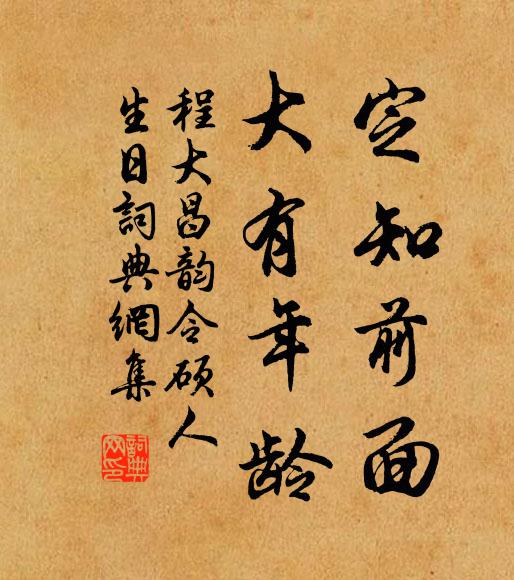 定知前面
大有年龄
程大昌韵令硕人
生日詞典網集
詞典
网印